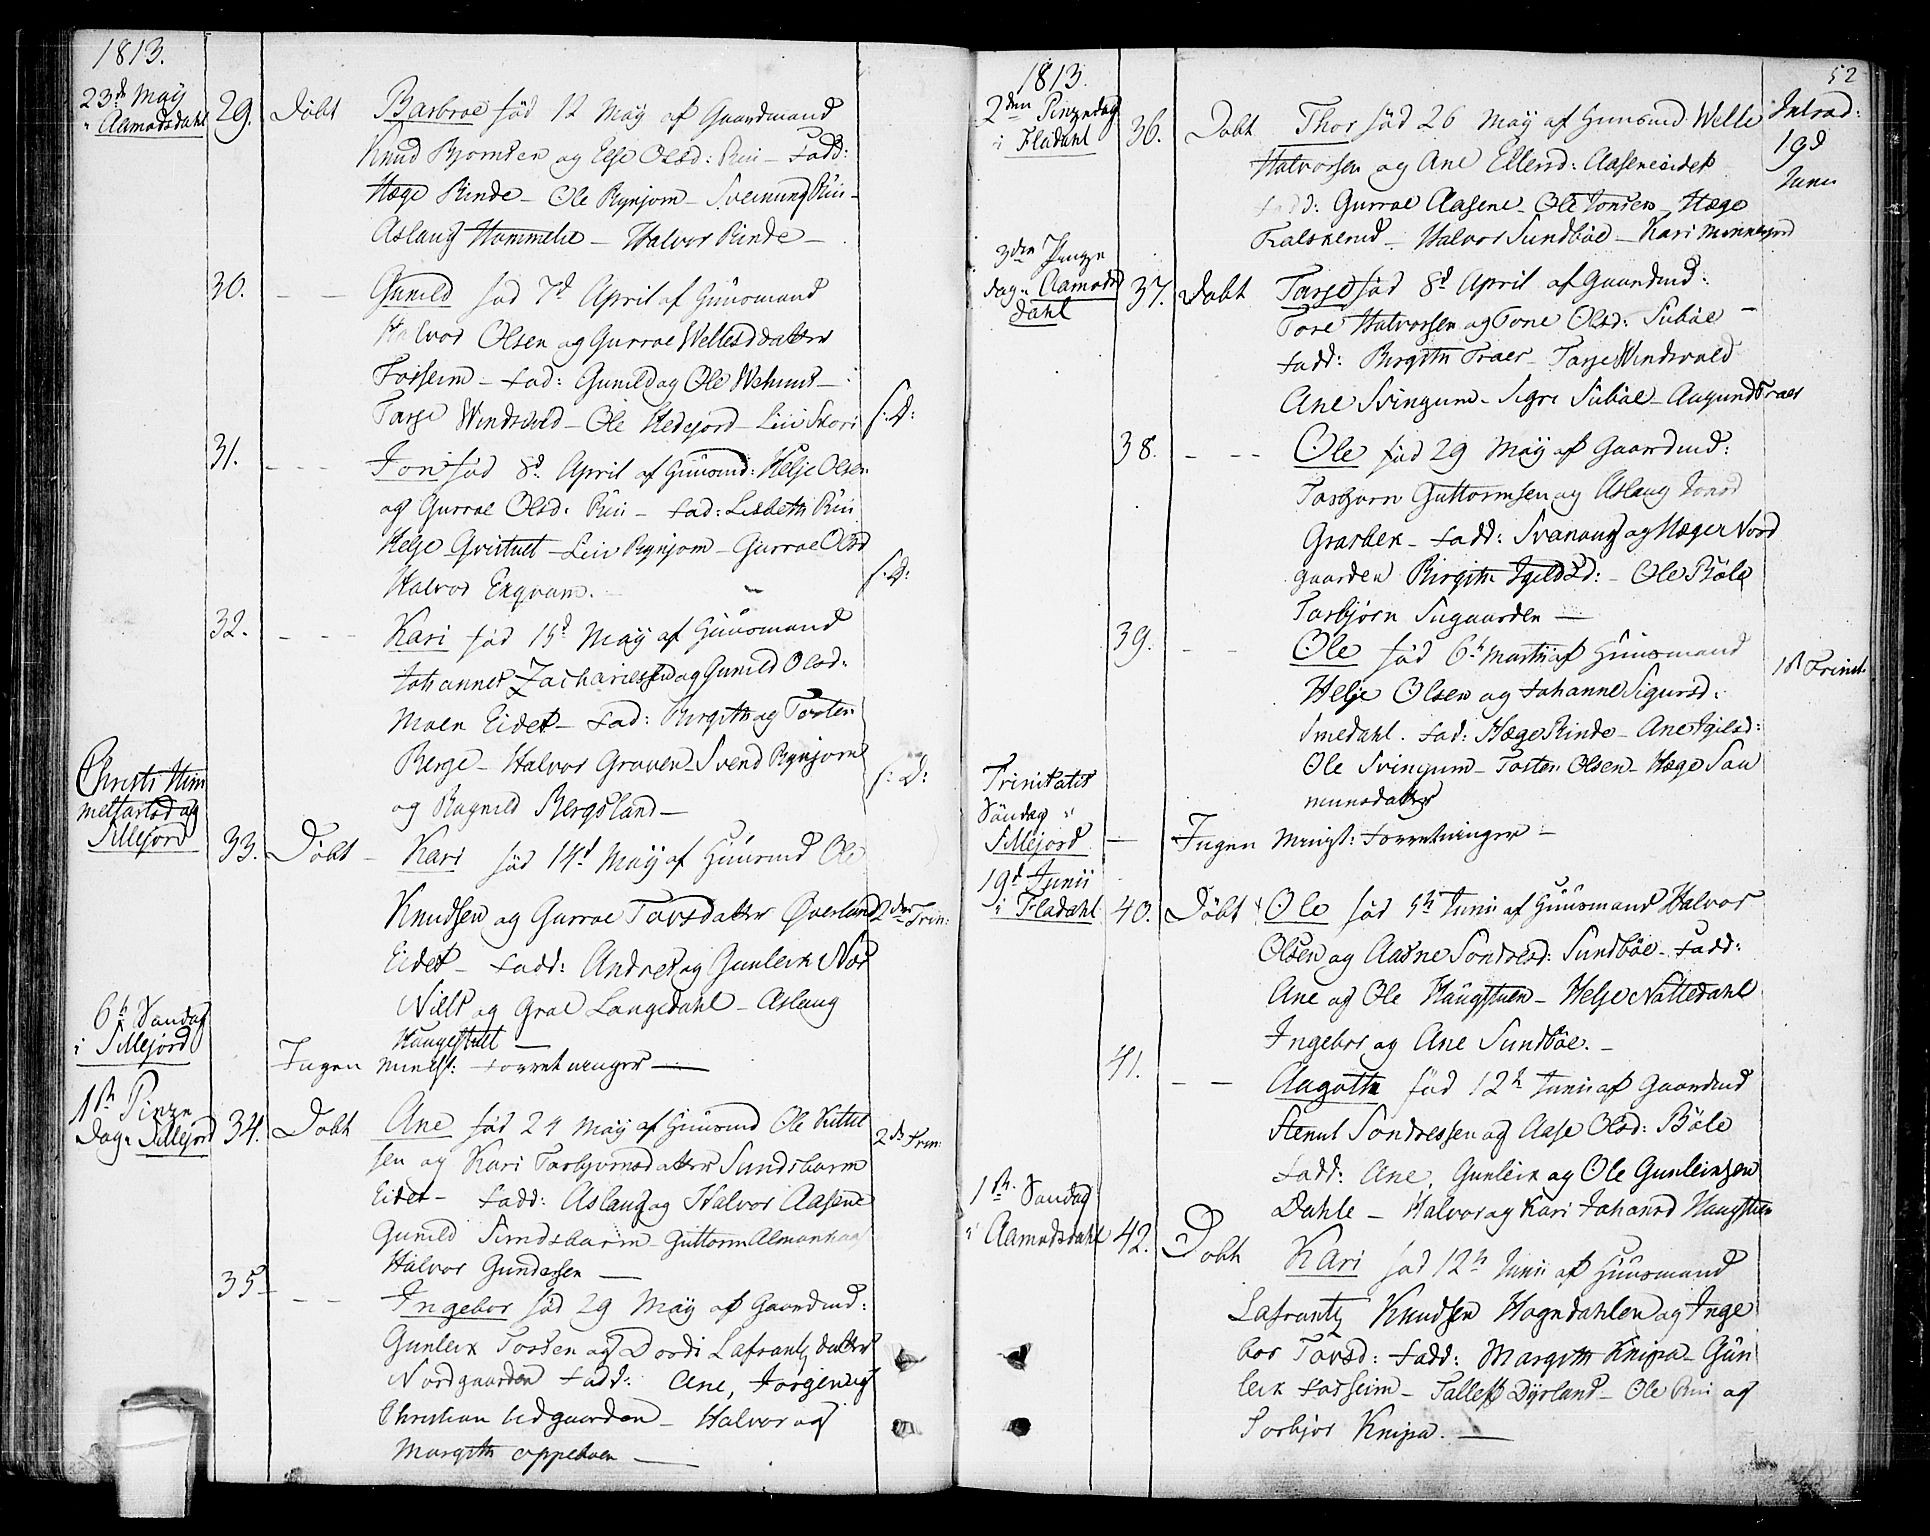 1813.
23d. Maÿ
i Aamodsdahl
29. Döbt Barbroe föd 12 Maÿ af Gaardmand
Knud Bjornsen og Else Olsd: Rui - Fadd:
Hæge Rinde - Ole Rynjom - Sveinung Rui -
Aslaug Hommelie - Halvor Rinde -
30. - - Gunild föd 7d April af Huusmand
Halvor Olsen og Gurroe Wellesdatter
Forseim - Fad: Gunild og Ole Wehuus -
Tarje Windsvold - Ole Hedejord - Liv Skori
f: D:
31. - - - Jon föd 8d. April af Huusmd: Helje Olsen
og Gurroe Olsd. Rui - Fad: Lisbeth Rui
Helje Qvistult - Leiv Rynjom - Gurroe Olsd
Halvor Exqvam.
f: D:
32. - - - Kari föd 15d Maÿ af Huusmand
Johannes Zachariessen og Gunild Olsd.
Moen Eidet - Fad: Birgith og Torsten
Berge - Halvor Graven - Svend Rynjom
og Ragnild Bergsland -
f: D:
Christi Him
melfartsdag
Sillejord
33. Döbt - Kari föd 14d Maÿ af Huusmd Ole
Knudsen og Gurroe Torsdatter Överland
Eidet - Fadd: Andres og Gunleik Nos
Niels og Groe Langedahl - Aslaug
Haugestult -
2den Trin:
6th Søndag
i Sillejord
Ingen minist: Forretninger -
1ste Pinze
Dag i Sillejord
34. Dobt Ane föd 24 Maÿ af Huusmd Ole Kittel
sen og Kari Torbjornsdatter Sundsbarm
Eidet - Fadd: Aslaug og Halvor Aasene
Gunild Sundsbarm - Guttorm
Halvor Gundersen -
2d. Trin:
35 - - - Ingebor föd 29 Maÿ af Gaardmd:
Gunleik Torsen og Dordi Lafrantz datter
Nordgaarden Fadd: Ane, Jorgen og
Christian Udgaarden - Halvor og
Margith Oppeboen -
1813.
52
2den Pinzedag
i Fladahl
36. Dobt Thor föd 26 Maÿ af Huusmd Welle
Halvorsen og Ane Ellensd: Aaseneidet
Fadd: Gurroe Aasene - Ole Jonsen - Hæge
Tralskerud - Halvor Sundböe - Kari Mannejord
Introd:
19d
Junii
3den Pinze
dag i Aamods
dahl
37. Dobt Tarje föd 8d April af Gaardmd:
Tore Halvorsen og Tone Olsd: Suböe -
Fadd: Birgith Traer - Tarje Windsvold
Ane Svingum - Sigri Suböe - Augund Traer
38. - - - Ole föd 29 Maÿ af Gaardmd:
Torbjorn Guttormsen og Aslaug Jonsd
Grasbek - Fadd: Svanaug og Hæge Nord
gaarden Birgith Igilds d: - Ole Böle
Torbjörn Sugaarden -
39. - - Ole föd 6th Martii af Huusmand
Helje Olsen og Johanne Sigursd:
Smedahl. Fad: Hæge Rinde - Ane Igilsd:
Ole Svingum - Torsten Olsen - Hæge Sau
munsdatter
1st Trinit.
Trinitatis
Söndag i
Sillejord
- Ingen minist: Forretninger -
19d Junii
i Fladahl
40. Döbt Ole föd 5th Junii af Huusmand Halvor
Olsen og Aasne Sondresd: Sundböe - Fadd:
Ane og Ole Haugstuen - Helje Nattedahl
Ingebor og Ane Sundböe. -
41. - - Aagoth föd 12th Junii af Gaardmd
Stenul Sondressen og Aase Olsd: Böle
Fadd: Ane, Gunleik og Ole Gunleiksen
Dahle - Halvor og Kari Johansd Haugstuen
1th. Søndag
i Aamodsdahl
42. Dobt Kari föd 12th Junii af Huusmand
Lafrantz Knudsen Hogndahlen og Inge
bor Torsd: Fadd: Margith Knipa - Gün
leik Forseim - Tallef Dÿrland - Ole Rui og
Torbjor Knipa. -